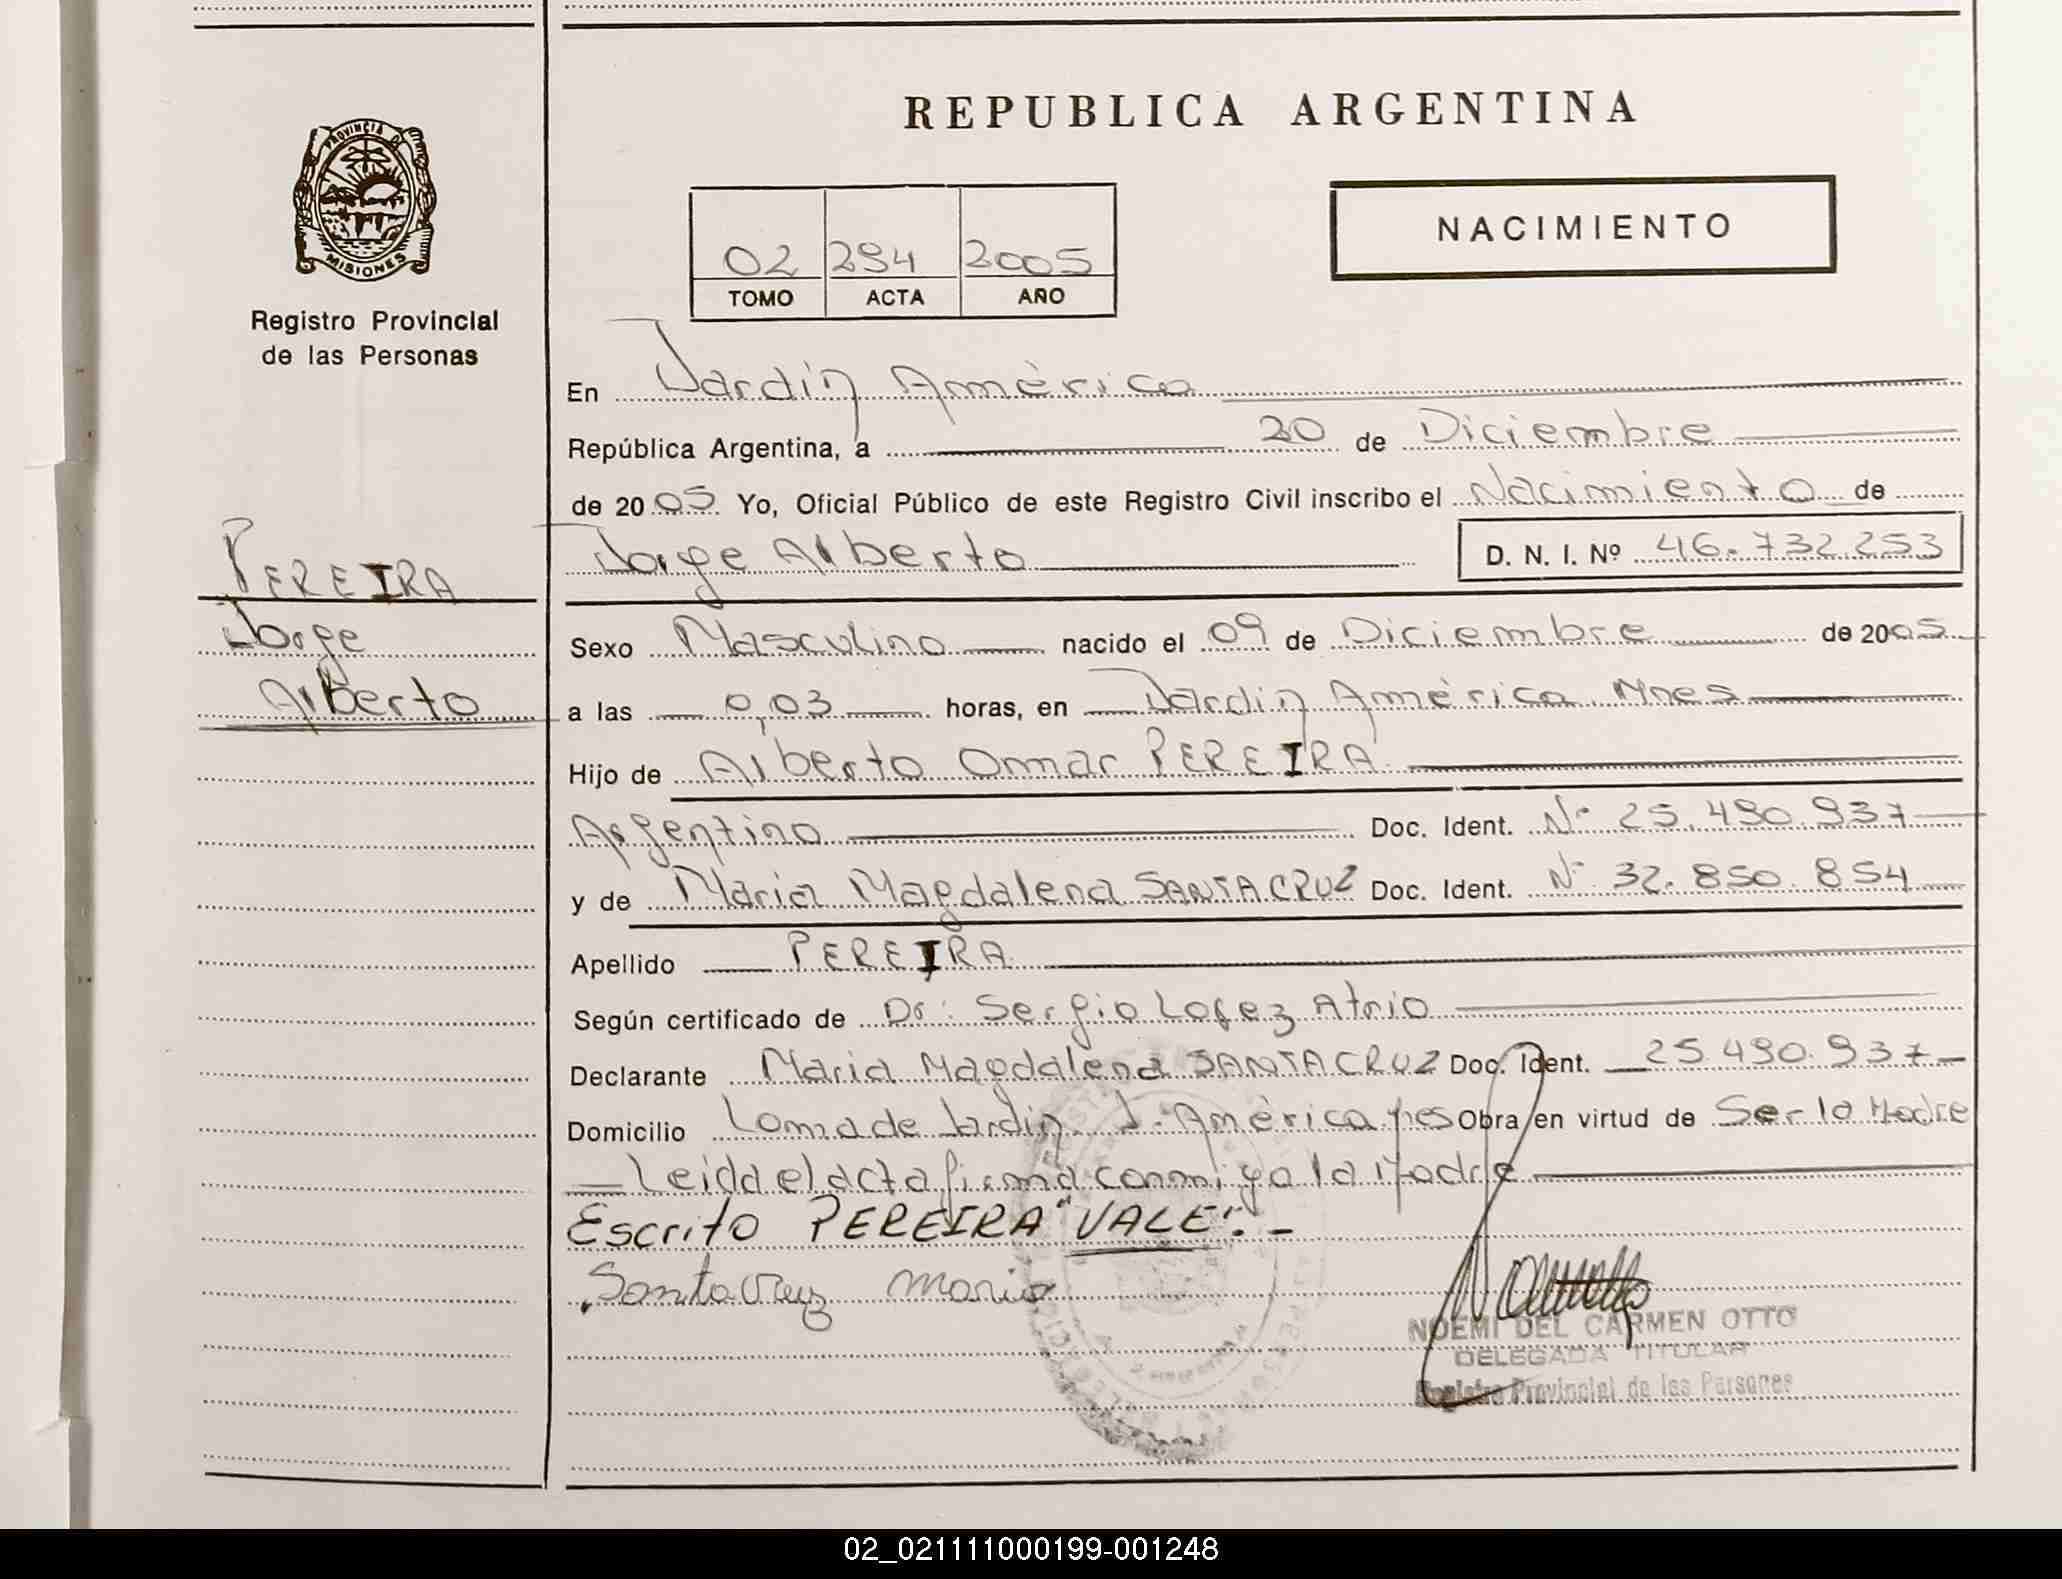 REPUBLICA ARGENTINA
PROVINCIA DE
MISIONES
NACIMIENTO
02 294 2005
TOMO ACTA AÑO
Registro Provincial
de las Personas
En Jardín América
República Argentina, a 20 de Diciembre
de 2005 Yo, Oficial Público de este Registro Civil inscribo el Nacimiento de
Jorge Alberto D. N. I. Nº 46.732.253
PEREIRA
Jorge
Alberto
Sexo Masculino nacido el 09 de Diciembre de 2005
a las 0,03 horas, en Jardín América Mnes
Hijo de Alberto Omar PEREIRA
Argentino Doc. Ident. Nº 25.490.937
y de Maria Magdalena SANTACRUZ Doc. Ident. Nº 32.850.854
Apellido PEREIRA
Según certificado de Dr: Sergio Lopez Atrio
Declarante Maria Magdalena SANTACRUZ Doc. Ident. 25.490.937
Domicilio Loma de Jardín J. América Obra en virtud de Ser la Madre
Leida el acta firma conmigo la Madre
Escrito PEREIRA "VALE".-
Santacruz Maria
NOEMI DEL CARMEN OTTO
DELEGADA TITULAR
Registro Provincial de las Personas
02_021111000199-001248